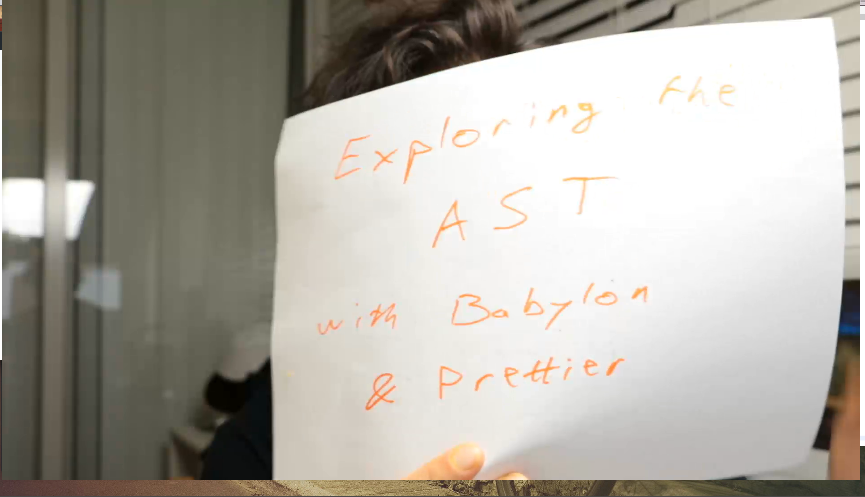 Exploring the
AST
with Babylon
& Prettier